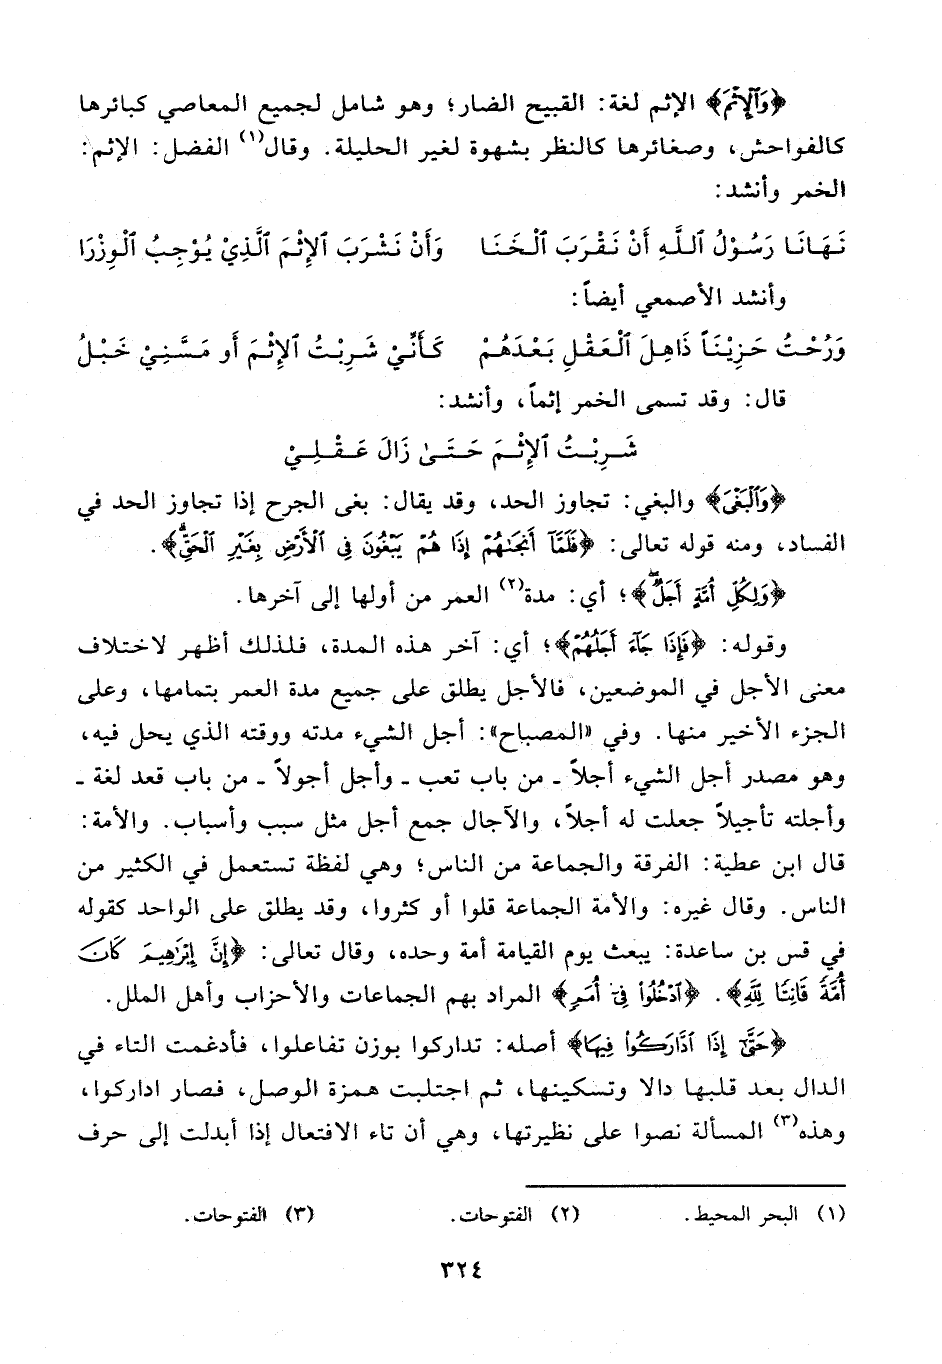 ﴿وَٱلْإِثْمَ﴾ الإثم لغة: القبيح الضار؛ وهو شامل لجميع المعاصي كبائرها
كالفواحش، وصغائرها كالنظر بشهوة لغير الحليلة. وقال(١) الفضل: الإثم:
الخمر وأنشد:
نَهَانَا رَسُوْلُ ٱللَّهِ أَنْ نَقْرَبَ ٱلْخَنَا وَأَنْ نَشْرَبَ ٱلإِثْمَ ٱلَّذِيْ يُوْجِبُ ٱلْوِزْرَا
وأنشد الأصمعي أيضاً:
وَرُحْتُ حَزِيْنَاً ذَاهِلَ ٱلْعَقْلِ بَعْدَهُمْ كَأَنِّيْ شَرِبْتُ ٱلإِثْمَ أَو مَسَّنِيْ خَبْلُ
قال: وقد تسمى الخمر إثماً، وأنشد:
شَرِبْتُ ٱلإِثْمَ حَتَىٰ زَالَ عَقْلِيْ
﴿وَٱلْبَغْىَ﴾ والبغي: تجاوز الحد، وقد يقال: بغى الجرح إذا تجاوز الحد في
الفساد، ومنه قوله تعالى: ﴿فَلَمَّآ أَنجَىٰهُمْ إِذَا هُمْ يَبْغُونَ فِى ٱلْأَرْضِ بِغَيْرِ ٱلْحَقِّۗ﴾.
﴿وَلِكُلِّ أُمَّةٍ أَجَلٌۖ﴾؛ أي: مدة(٢) العمر من أولها إلى آخرها.
وقوله: ﴿فَإِذَا جَآءَ أَجَلُهُمْ﴾؛ أي: آخر هذه المدة، فلذلك أظهر لاختلاف
معنى الأجل في الموضعين، فالأجل يطلق على جميع مدة العمر بتمامها، وعلى
الجزء الأخير منها. وفي «المصباح»: أجل الشيء مدته ووقته الذي يحل فيه،
وهو مصدر أجل الشيء أجلاً ـ من باب تعب ـ وأجل أجولاً ـ من باب قعد لغة ـ
وأجلته تأجيلاً جعلت له أجلاً، والآجال جمع أجل مثل سبب وأسباب. والأمة:
قال ابن عطية: الفرقة والجماعة من الناس؛ وهي لفظة تستعمل في الكثير من
الناس. وقال غيره: والأمة الجماعة قلوا أو كثروا، وقد يطلق على الواحد كقوله
في قس بن ساعدة: يبعث يوم القيامة أمة وحده، وقال تعالى: ﴿إِنَّ إِبْرَٰهِيمَ كَانَ
أُمَّةً قَانِتًا لِّلَّهِ﴾. ﴿ٱدْخُلُواْ فِىٓ أُمَمٍ﴾ المراد بهم الجماعات والأحزاب وأهل الملل.
﴿حَتَّىٰٓ إِذَا ٱدَّارَكُواْ فِيهَا﴾ أصله: تداركوا بوزن تفاعلوا، فأدغمت التاء في
الدال بعد قلبها دالا وتسكينها، ثم اجتلبت همزة الوصل، فصار اداركوا،
وهذه(٣) المسألة نصوا على نظيرتها، وهي أن تاء الافتعال إذا أبدلت إلى حرف
(١) البحر المحيط. (٢) الفتوحات. (٣) الفتوحات.
٣٢٤